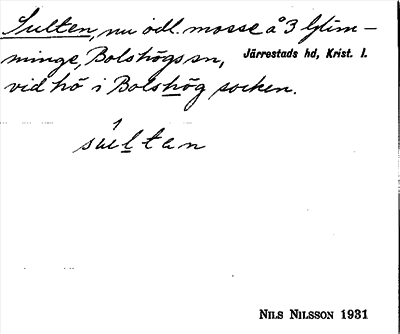 Sulten, nu odl. mosse å 3 Glim-
minge, Bolshögs sn, Järrestads hd, Krist. l.
vid hö i Bolshög socken.
súltan
NILS NILSSON 1931